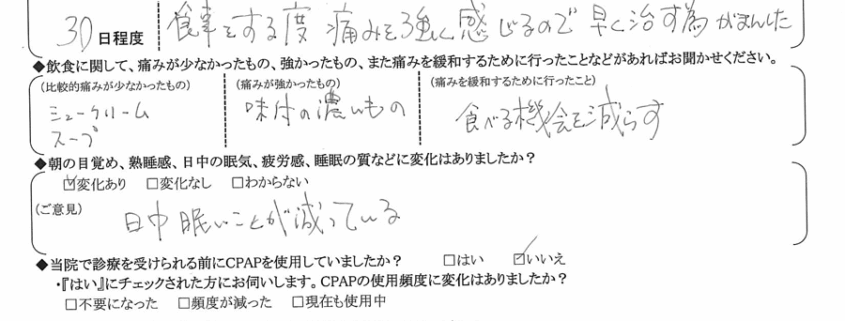 30日程度 食事をする度 痛みを強く感じるので 早く治す為がまんした
◆飲食に関して、痛みが少なかったもの、強かったもの、また痛みを緩和するために行ったことなどがあればお聞かせください。
(比較的痛みが少なかったもの) (痛みが強かったもの) (痛みを緩和するために行ったこと)
シュークリーム 味付の濃いもの 食べる機会を減らす
スープ
◆朝の目覚め、熟睡感、日中の眠気、疲労感、睡眠の質などに変化はありましたか?
☑変化あり □変化なし □わからない
(ご意見) 日中 眠いことが減っている
◆当院で診療を受けられる前にCPAPを使用していましたか? □はい ☑いいえ
・『はい』にチェックされた方にお伺いします。CPAPの使用頻度に変化はありましたか?
□不要になった □頻度が減った □現在も使用中